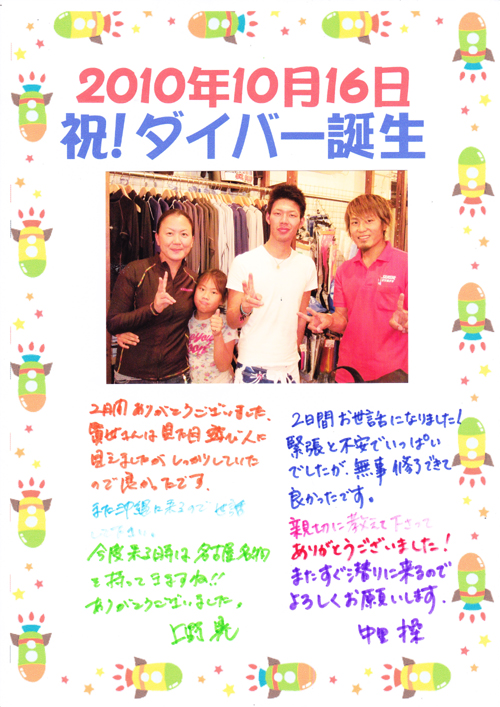 2010年10月16日
祝!ダイバー誕生
2日間ありがとうございました。
見えましたがしっかりしていた
ので良かったです。
今度来る時は名古屋名物
を持ってきますね!!
ありがとうございました。
上野
2日間お世話になりました!
緊張と不安でいっぱい
でしたが、無事修了できて
良かったです。
親切に教えて下さって
ありがとうございました!
またすぐ潜りに来るので
よろしくお願いします。